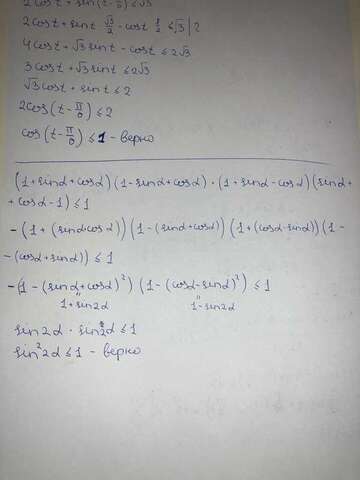 2cost + sin(t - π/6) ≤ √3
2cost + sint √3/2 - cost 1/2 ≤ √3 | 2
4cost + √3 sint - cost ≤ 2√3
3cost + √3 sint ≤ 2√3
√3cost + sint ≤ 2
2cos(t - π/6) ≤ 2
cos(t - π/6) ≤ 1 - верно
(1 + sinα + cosα)(1 - sinα + cosα) · (1 + sinα - cosα)(sinα +
+ cosα - 1) ≤ 1
-(1 + (sinα + cosα))(1 - (sinα + cosα))(1 + (cosα - sinα))(1 -
- (cosα + sinα)) ≤ 1
-(1 - (sinα + cosα)²)(1 - (cosα - sinα)²) ≤ 1
1 + sin2α 1 - sin2α
sin2α · sin2α ≤ 1
sin²2α ≤ 1 - верно